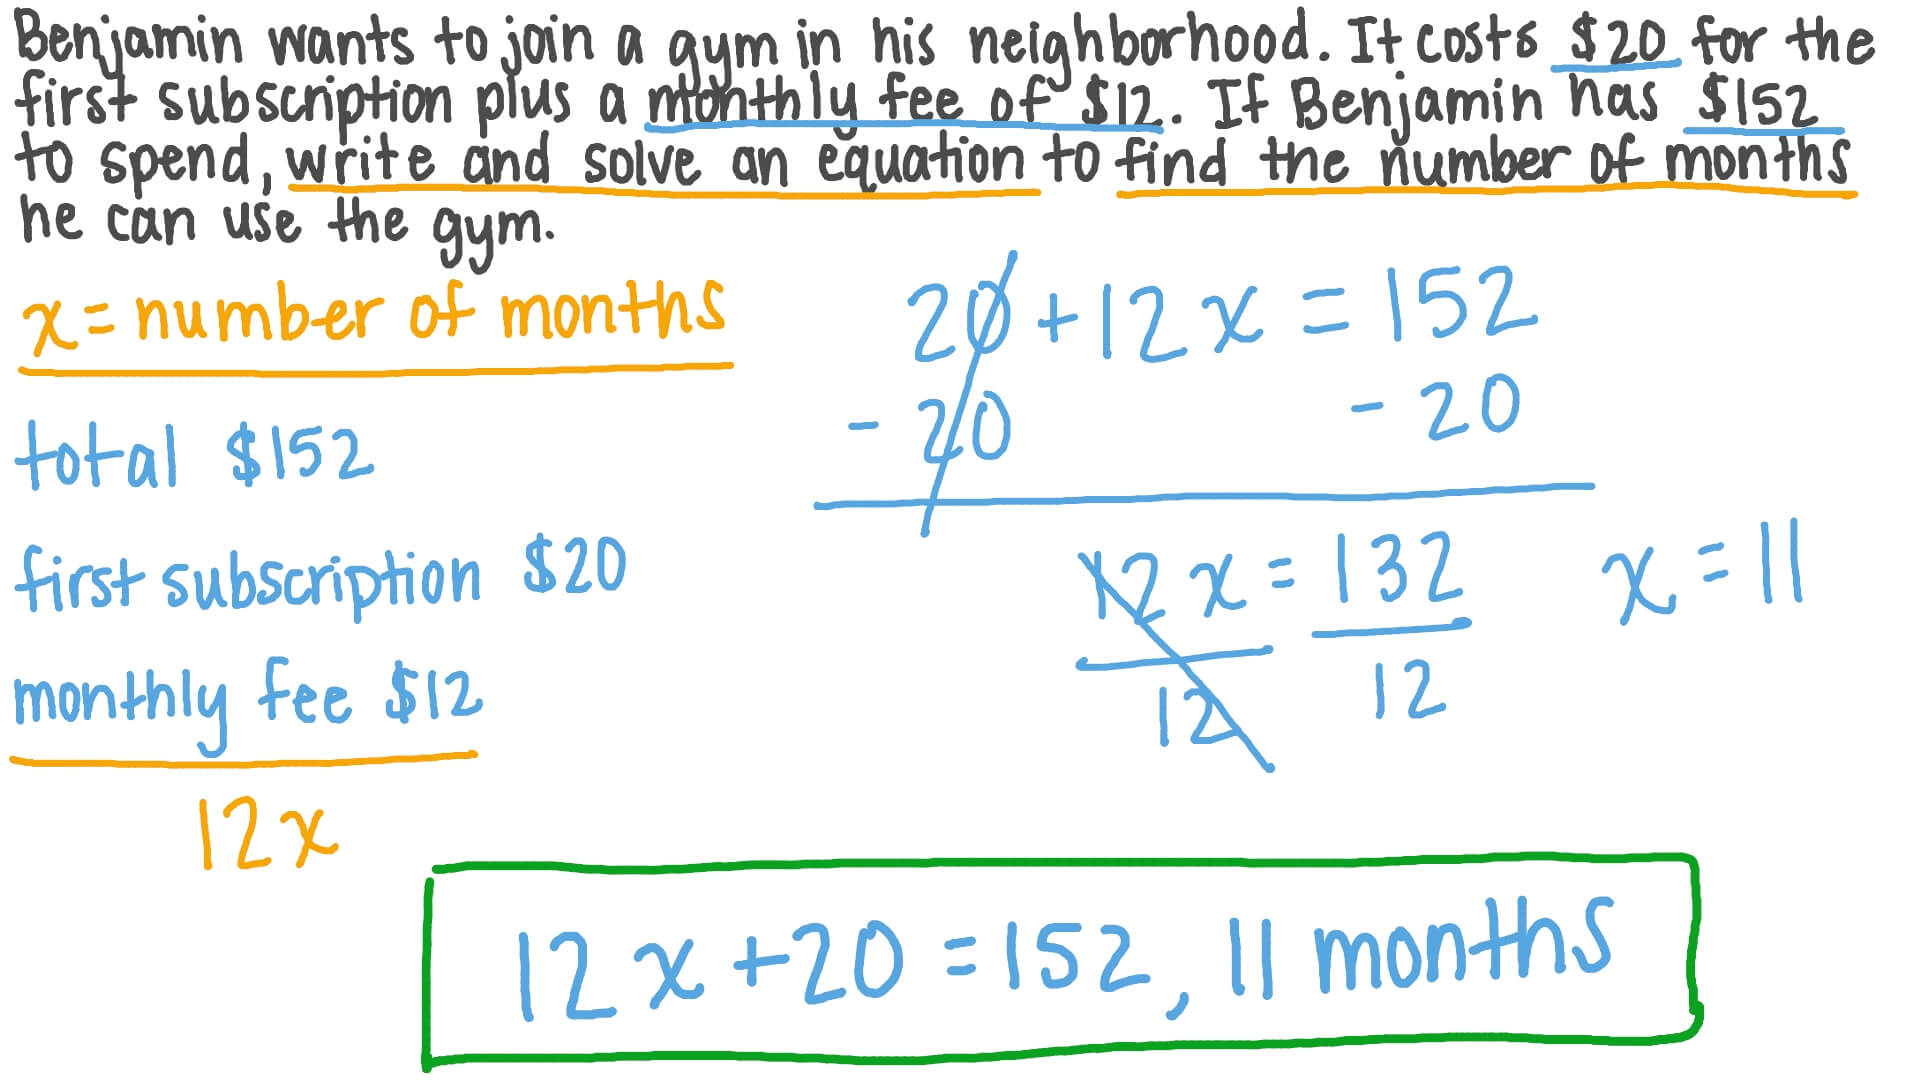 Benjamin wants to join a gym in his neighborhood. It costs $20 for the
first subscription plus a monthly fee of $12. If Benjamin has $152
to spend, write and solve an equation to find the number of months
he can use the gym.
x = number of months
total $152
first subscription $20
monthly fee $12
12x
20 + 12x = 152
- 20 - 20
12x = 132
12 12
x = 11
12x + 20 = 152, 11 months